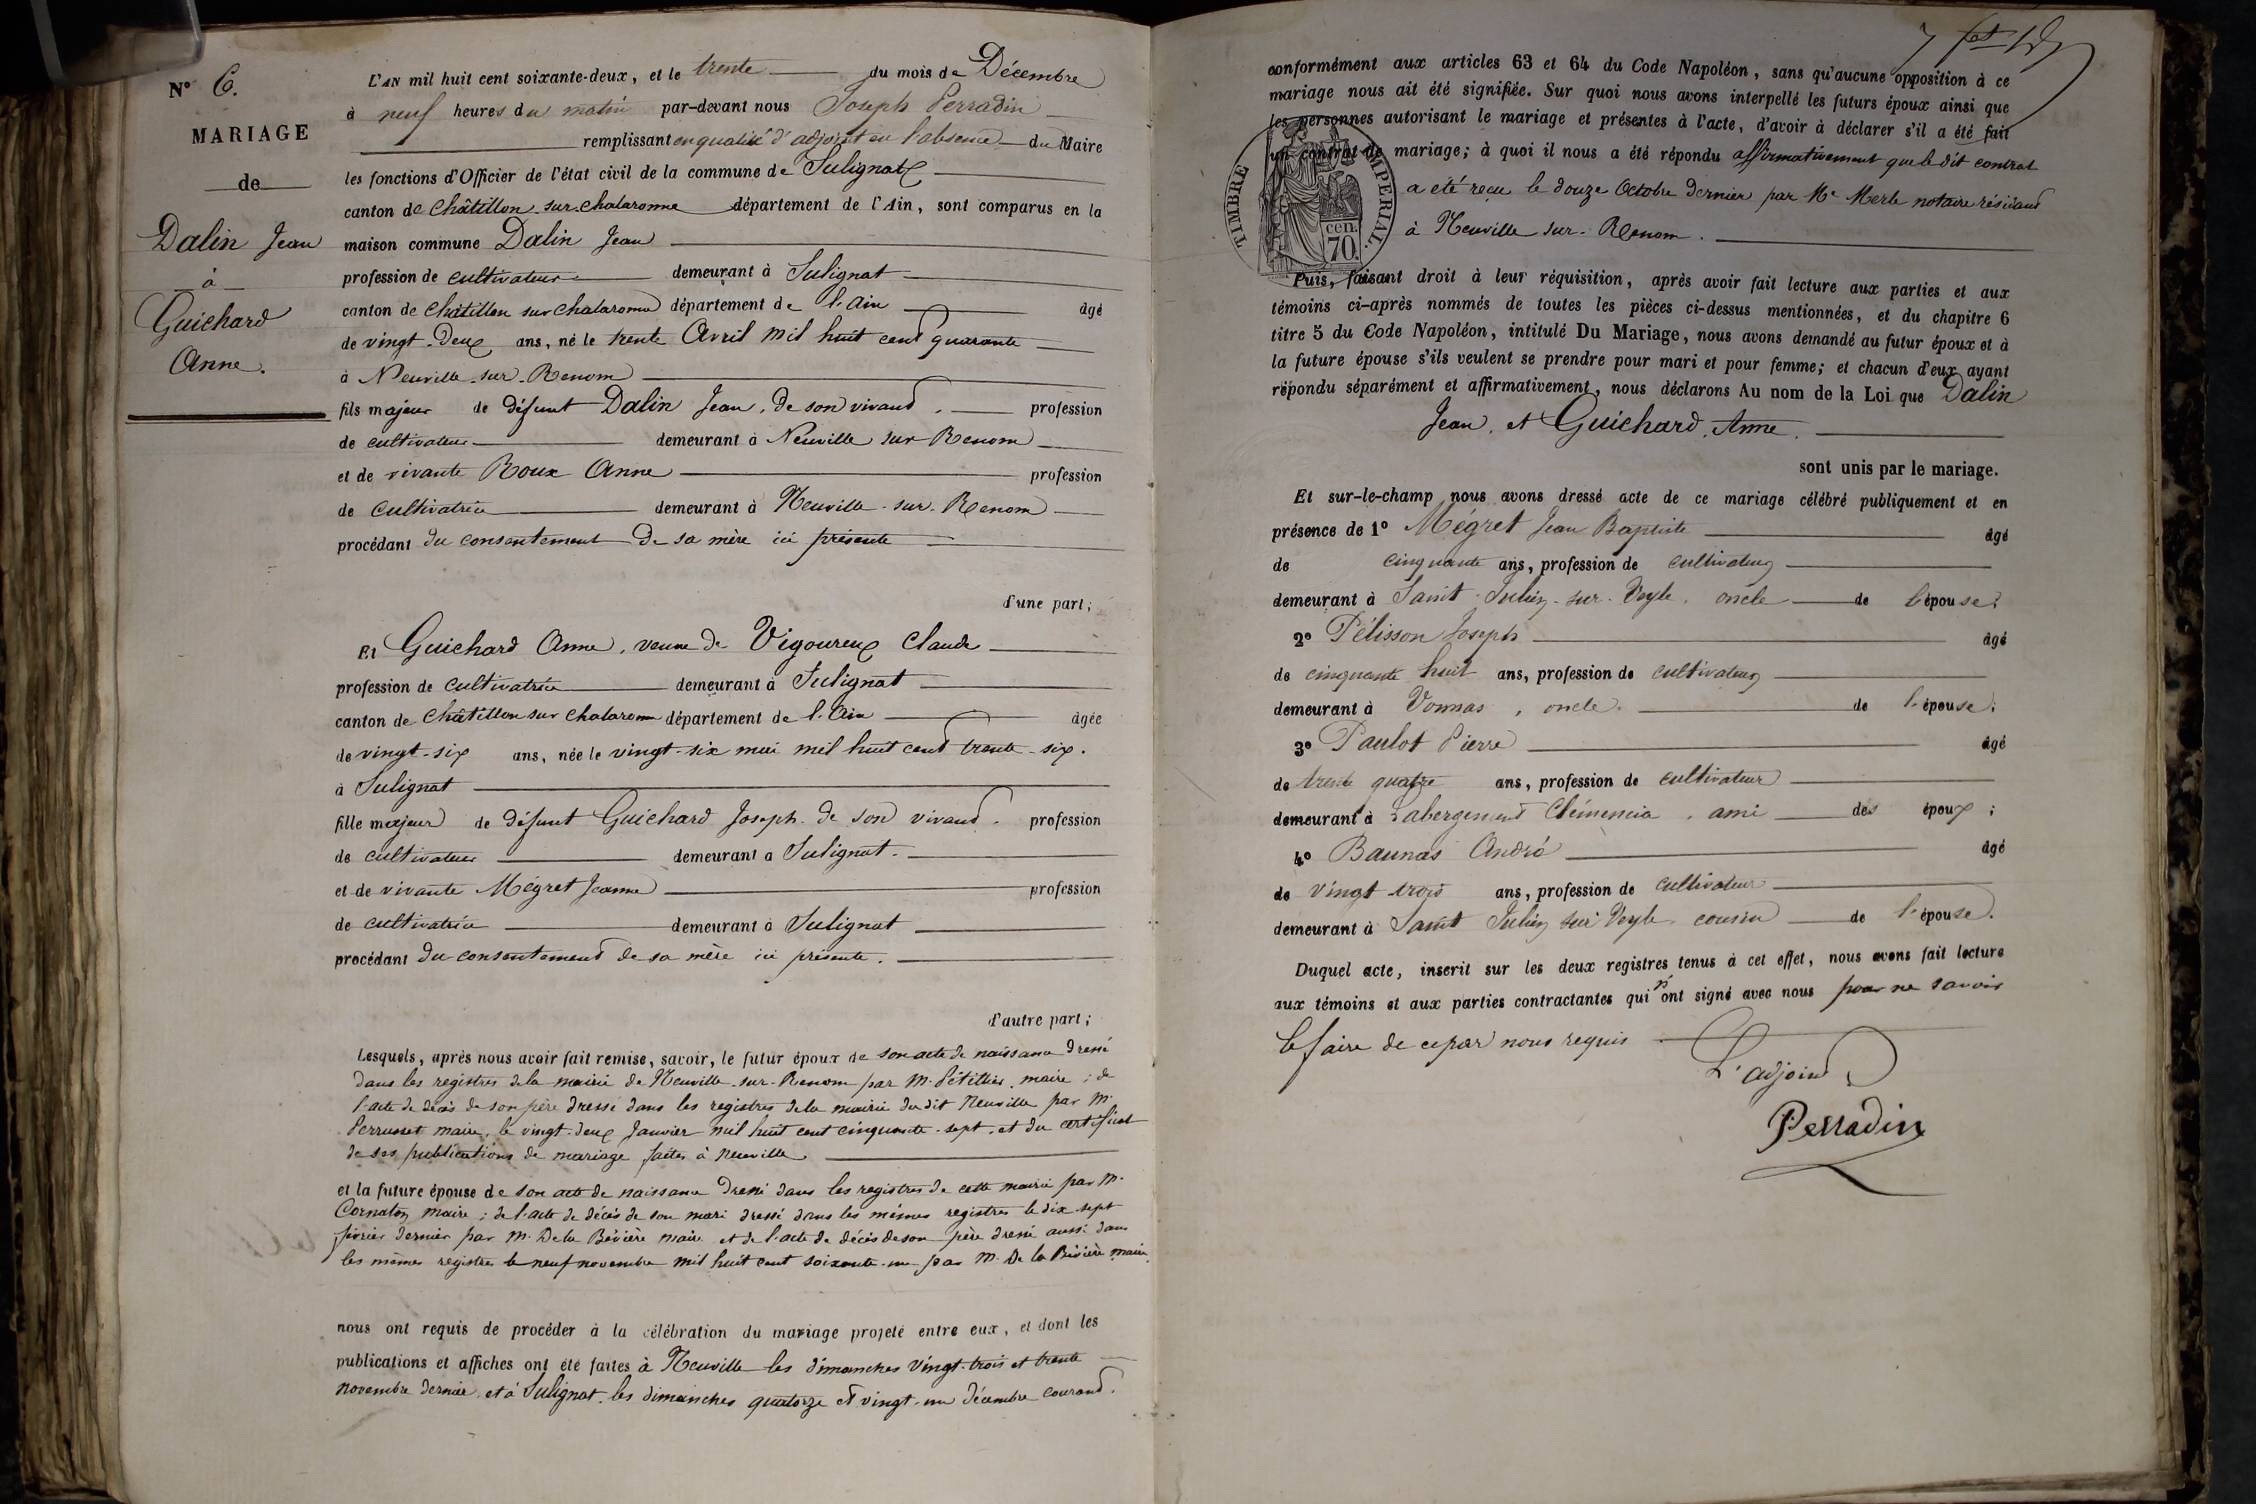 N° 6.
MARIAGE
de
Dalin Jean
à
Guichard
Anne.
L'AN mil huit cent soixante-deux, et le trente du mois de Décembre
à neuf heures du matin par-devant nous Joseph Perradin
remplissant en qualité d'adjoint en l'absence du Maire
les fonctions d'Officier de l'état civil de la commune de Sulignat
canton de Châtillon-sur-Chalaronne département de l'Ain, sont comparus en la
maison commune Dalin Jean
profession de cultivateur demeurant à Sulignat
canton de Châtillon sur Chalaronne département de l'Ain âgé
de vingt-deux ans, né le trente Avril mil huit cent quarante
à Neuville-sur-Renom
fils majeur de défunt Dalin Jean, de son vivant, profession
de cultivateur demeurant à Neuville sur Renom
et de vivante Roux Anne profession
de cultivatrice demeurant à Neuville-sur-Renom
procédant du consentement de sa mère ici présente
d'une part;
Et Guichard Anne, veuve de Vigoureux Claude
profession de cultivatrice demeurant à Sulignat
canton de Châtillon sur Chalaronne département de l'Ain âgée
de vingt-six ans, née le vingt-six mai mil huit cent trente-six.
à Sulignat
fille majeur de défunt Guichard Joseph de son vivant. profession
de cultivateur demeurant à Sulignat.
et de vivante Mégret Jeanne profession
de cultivatrice demeurant à Sulignat
procédant du consentement de sa mère ici présente.
d'autre part;
Lesquels, après nous avoir fait remise, savoir, le futur époux de son acte de naissance dressé
dans les registres de la mairie de Neuville-sur-Renom par M. Pétillier, maire; de
l'acte de décès de son père dressé dans les registres de la mairie du dit Neuville par M.
Perrusset maire, le vingt-deux Janvier mil huit cent cinquante-sept, et du certificat
de ses publications de mariage faites à Neuville
et la future épouse de son acte de naissance dressé dans les registres de cette mairie par M.
Cornaton maire; de l'acte de décès de son mari dressé dans les mêmes registres le dix sept
février dernier par M. De la Bévière maire et de l'acte de décès de son père dressé aussi dans
les mêmes registres le neuf novembre mil huit cent soixante-un par M. De la Bévière maire.
nous ont requis de procéder à la célébration du mariage projeté entre eux, et dont les
publications et affiches ont été faites à Neuville les dimanches vingt-trois et trente
novembre dernier, et à Sulignat, les dimanches quatorze et vingt-un décembre courant.
conformément aux articles 63 et 64 du Code Napoléon, sans qu'aucune opposition à ce
mariage nous ait été signifiée. Sur quoi nous avons interpellé les futurs époux ainsi que
les personnes autorisant le mariage et présentes à l'acte, d'avoir à déclarer s'il a été fait
un contrat de mariage; à quoi il nous a été répondu affirmativement que le dit contrat
a été reçu le douze Octobre dernier par Me Merle notaire résidant
à Neuville-sur-Renom.
TIMBRE IMPERIAL.
cen.
70.
Puis, faisant droit à leur réquisition, après avoir fait lecture aux parties et aux
témoins ci-après nommés de toutes les pièces ci-dessus mentionnées, et du chapitre 6
titre 5 du Code Napoléon, intitulé Du Mariage, nous avons demandé au futur époux et à
la future épouse s'ils veulent se prendre pour mari et pour femme; et chacun d'eux ayant
répondu séparément et affirmativement, nous déclarons Au nom de la Loi que Dalin
Jean, et Guichard, Anne.
sont unis par le mariage.
Et sur-le-champ nous avons dressé acte de ce mariage célébré publiquement et en
présence de 1° Mégret Jean Baptiste âgé
de cinquante ans, profession de cultivateur
demeurant à Saint-Julien-sur-Veyle, oncle de l'épouse;
2° Pélisson Joseph âgé
de cinquante huit ans, profession de cultivateur
demeurant à Vonnas, oncle. de l'épouse;
3° Paulot Pierre âgé
de trente quatre ans, profession de cultivateur
demeurant à Labergement Clémencia, ami des époux;
4° Baunas André âgé
de vingt trois ans, profession de cultivateur
demeurant à Saint Julien sur Veyle, cousin de l'épouse.
Duquel acte, inscrit sur les deux registres tenus à cet effet, nous avons fait lecture
aux témoins et aux parties contractantes qui n'ont signé avec nous pour ne savoir
le faire de ce par nous requis
L'adjoint
Perradin